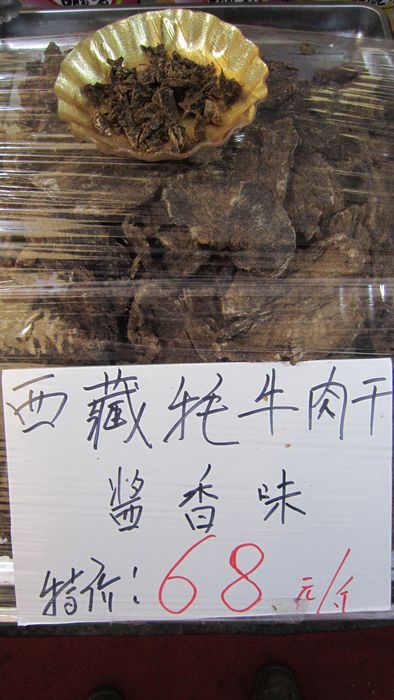 西藏牦牛肉干
醬香味
特价：68元/斤